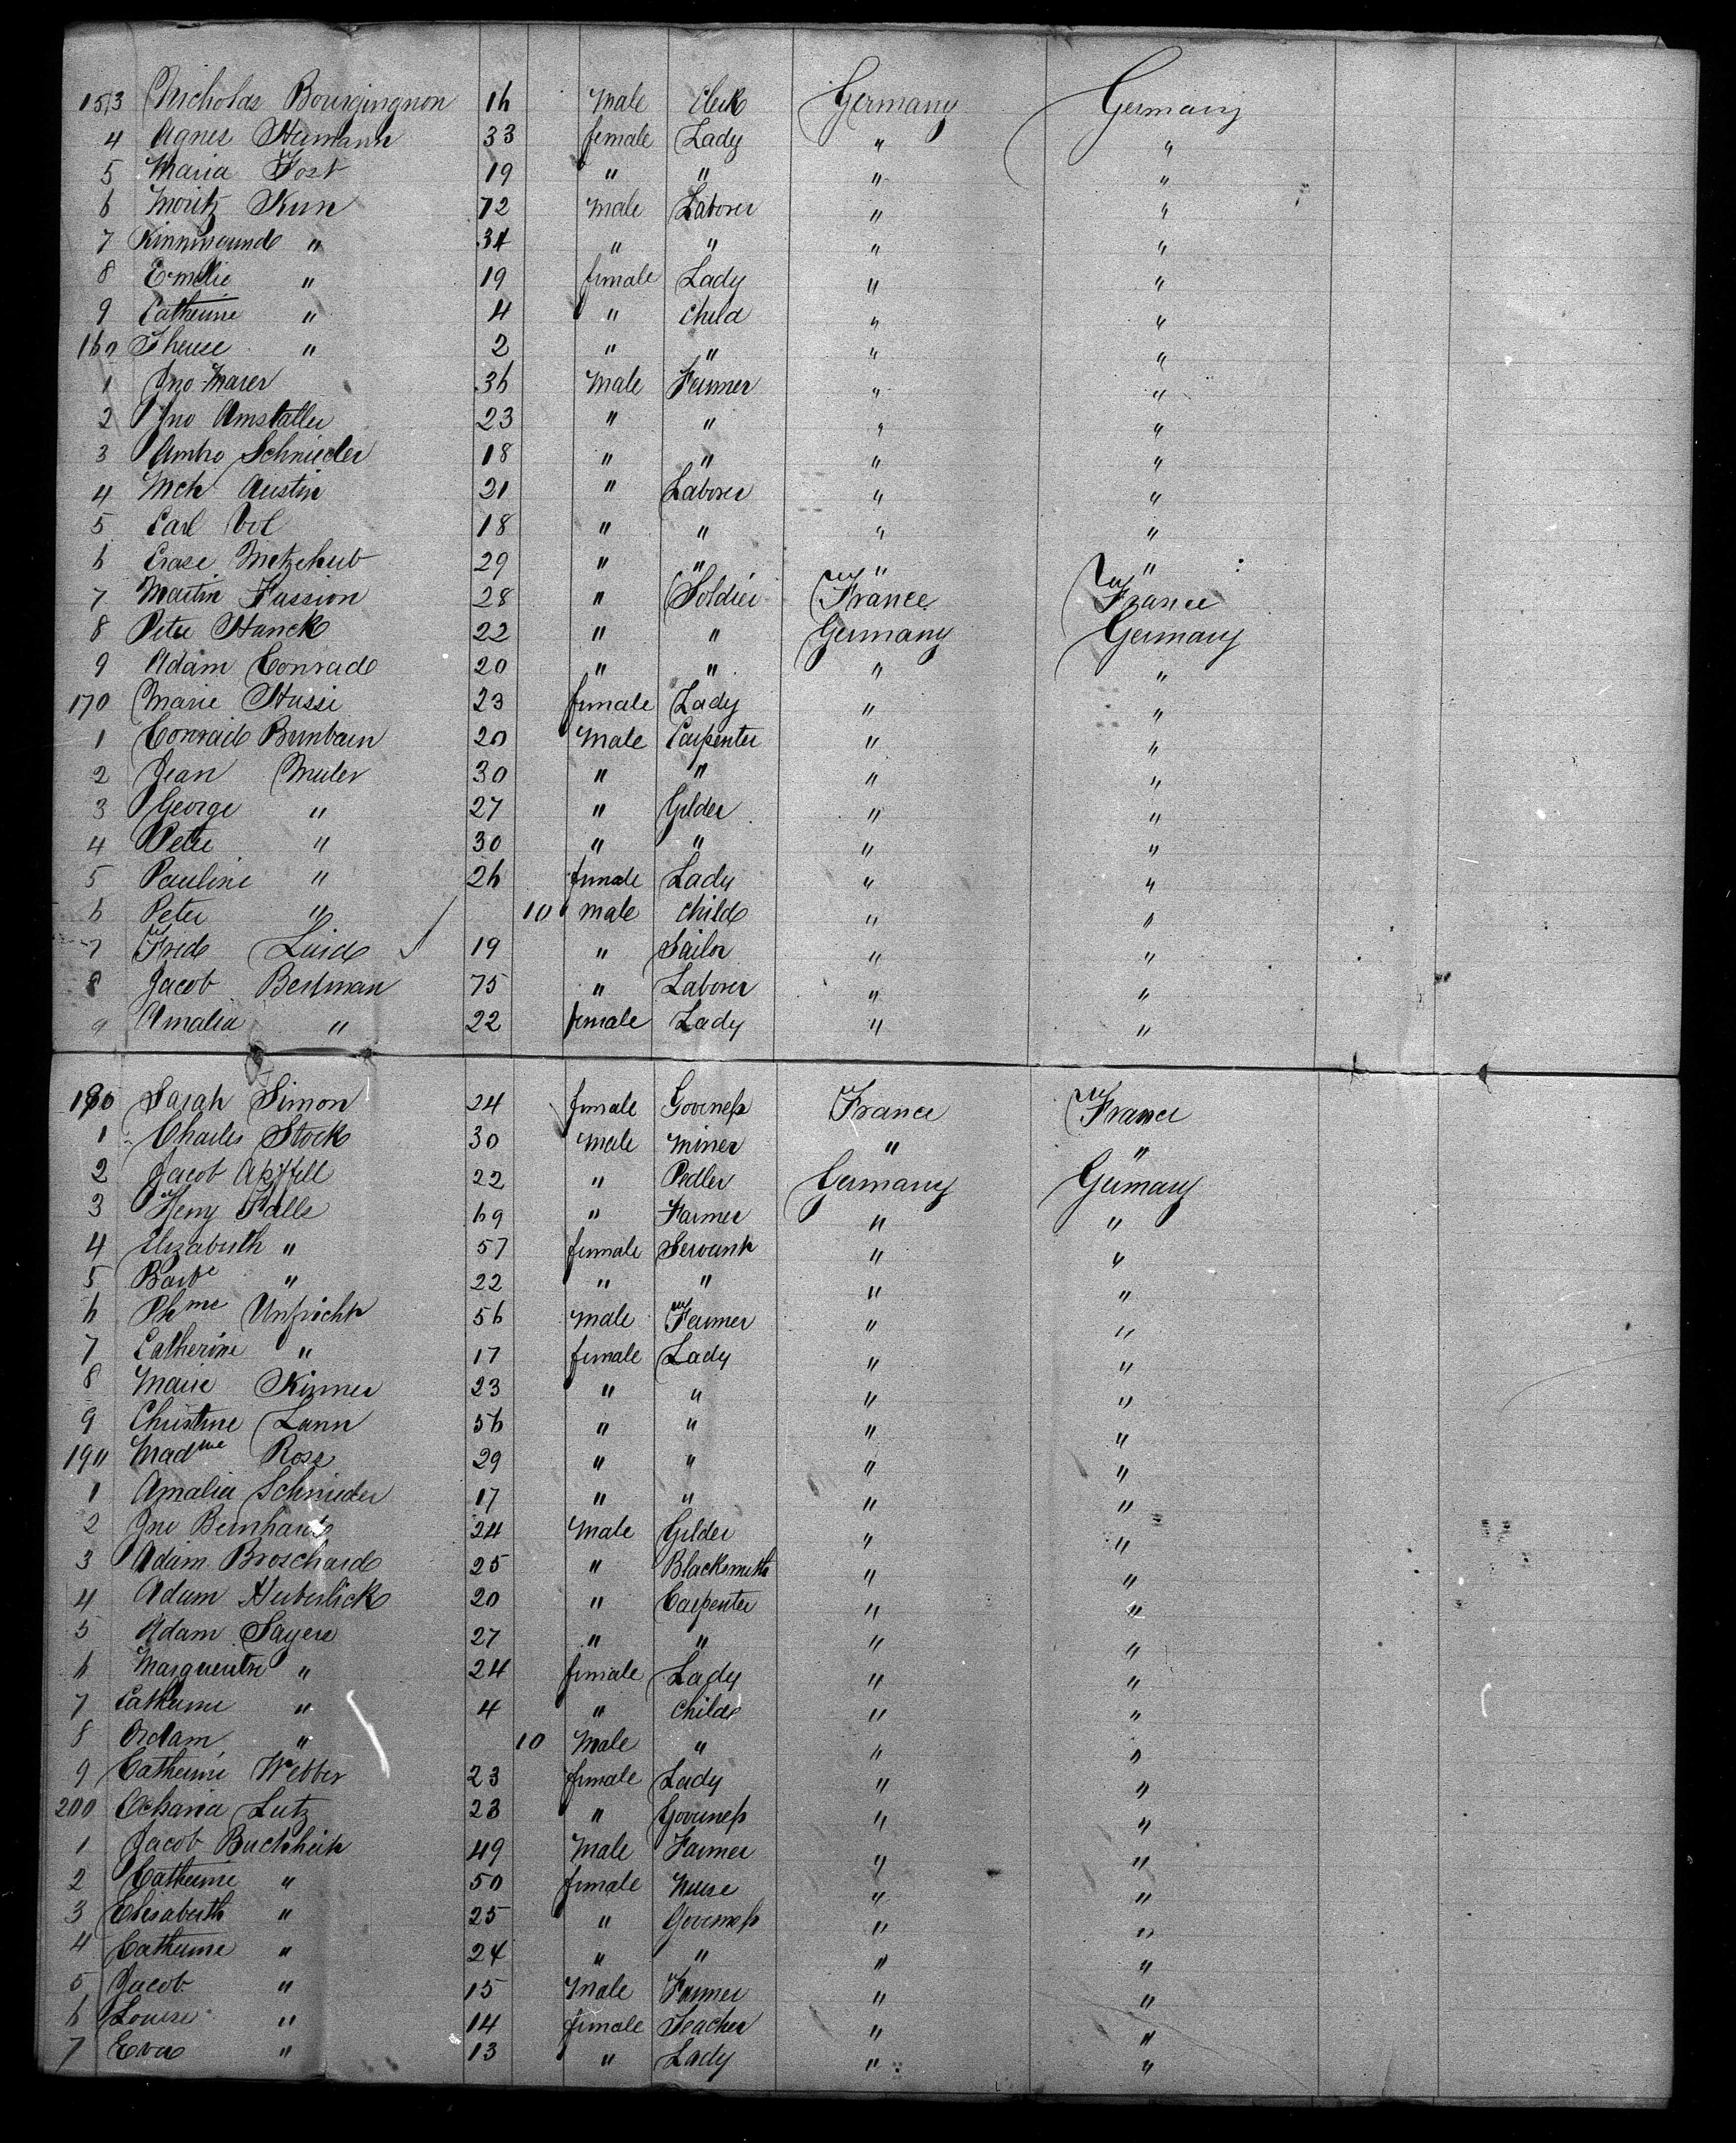 153 Nicholas Bourgingnon 16 Male Clerk Germany Germany
4 Agnes Hamann 33 female Lady " "
5 Maria Jost 19 " " " "
6 Moritz Kun 72 Male Laborer " "
7 " 34 " " " "
8 Emelie " 19 female Lady " "
9 Catherine " 4 " Child " "
160 Therese " 2 " " " "
1 Jno Maier 36 Male Farmer " "
2 Jno Amstatter 23 " " " "
3 Ambro Schnieder 18 " " " "
4 Mch Austin 21 " Laborer " "
5 Carl Vol 18 " " " "
6 29 " " " "
7 Martin Fassion 28 " Soldier France France
8 Peter Hanck 22 " " Germany Germany
9 Adam Conrad 20 " " " "
170 Marie Hussi 23 female Lady " "
1 Conrad Brunbaun 20 Male Carpenter " "
2 Jean Muler 30 " " " "
3 George " 27 " Gilder " "
4 Peter " 30 " " " "
5 Pauline " 26 female Lady " "
6 Peter " 10 male Child " "
7 Fred 19 " Sailor " "
8 Jacob Bertman 75 " Laborer " "
9 Amalia " 22 female Lady " "
180 Sarah Simon 24 female Governess France France
1 Charles Stock 30 male miner " "
2 Jacob Apffell 22 " Pedler Germany Germany
3 Henry Falls 69 " Farmer " "
4 Elizabeth " 57 female Servant " "
5 Barbe " 22 " " " "
6 Phme Unfricht 56 male Farmer " "
7 Catherine " 17 female Lady " "
8 Marie Kinner 23 " " " "
9 Christine Lann 56 " " " "
190 Madme Rose 29 " " " "
1 Amalia Schnieder 17 " " " "
2 Jno Bernhard 24 Male Gilder " "
3 Adam Broschard 25 " Blacksmith " "
4 Adam Huberlick 20 " Carpenter " "
5 Adam Sayers 27 " " " "
6 Marguerite " 24 female Lady " "
7 Catherine " 4 " Child " "
8 Adam " 10 Male " " "
9 Catherine Webber 23 female Lady " "
200 Lutz 23 " Governess " "
1 Jacob Buchheit 49 Male Farmer " "
2 Catherine " 50 female Nurse " "
3 Elisabeth " 25 " Governess " "
4 Catherine " 24 " " " "
5 Jacob " 15 Male Farmer " "
6 Louise " 14 female Teacher " "
7 Eva " 13 " Lady " "